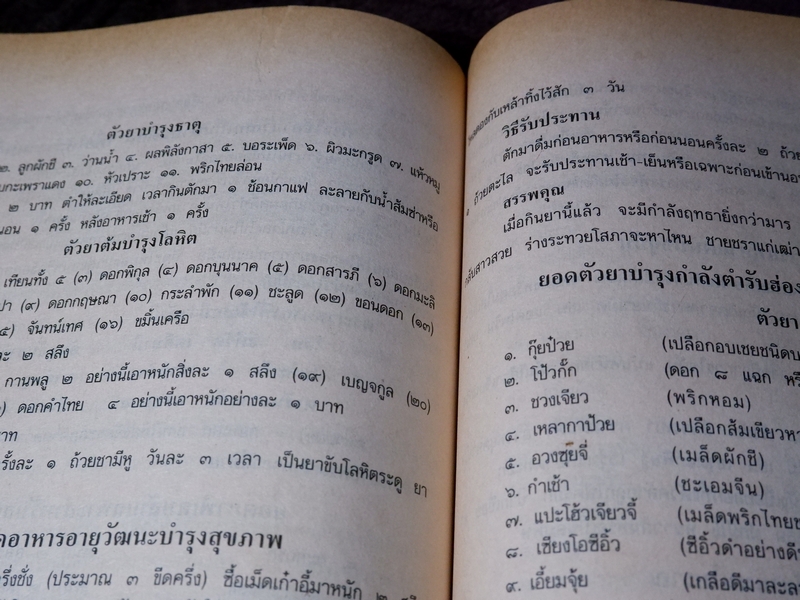 ตัวยาบำรุงธาตุ
๒. ลูกผักชี ๓. ว่านน้ำ ๔. ผลพิลังกาสา ๕. บอระเพ็ด ๖. ผิวมะกรูด ๗. แห้วหมู
กะเพราแดง ๑๐. หัวเปราะ ๑๑. พริกไทยล่อน
๒ บาท ตำให้ละเอียด เวลากินตักมา ๑ ช้อนกาแฟ ละลายกับน้ำส้มซ่าหรือ
นอน ๑ ครั้ง หลังอาหารเช้า ๑ ครั้ง
ตัวยาต้มบำรุงโลหิต
เทียนทั้ง ๕ (๓) ดอกพิกุล (๔) ดอกบุนนาค (๕) ดอกสารภี (๖) ดอกมะลิ
(๙) ดอกกฤษณา (๑๐) กระลำพัก (๑๑) ชะลูด (๑๒) ขอนดอก (๑๓)
จันทน์เทศ (๑๖) ขมิ้นเครือ
๒ สลึง
กานพลู ๒ อย่างนี้เอาหนักสิ่งละ ๑ สลึง (๑๙) เบญจกูล (๒๐)
ดอกคำไทย ๔ อย่างนี้เอาหนักอย่างละ ๑ บาท
ละ ๑ ถ้วยชามีหู วันละ ๓ เวลา เป็นยาขับโลหิตระดู ยา
อาหารอายุวัฒนะบำรุงสุขภาพ
ครึ่งชั่ง (ประมาณ ๓ ขีดครึ่ง) ซื้อเม็ดเก๋ากี้มาหนัก ๒
กับเหล้าทิ้งไว้สัก ๓ วัน
วิธีรับประทาน
ตักมาดื่มก่อนอาหารหรือก่อนนอนครั้งละ ๒ ถ้วย
ถ้วยตะไล จะรับประทานเช้า-เย็นหรือเฉพาะก่อนเข้านอน
สรรพคุณ
เมื่อกินยานี้แล้ว จะมีกำลังฤทธายิ่งกว่ามาร
สาวสวย ร่างระทวยโสภาจะหาไหน ชายชราแก่เฒ่า
ยอดตัวยาบำรุงกำลังตำรับฮ่อง
ตัวยา
๑. กุ๊ยป๋วย (เปลือกอบเชยชนิดบ
๒. โป้วกั๊ก (ดอก ๘ แฉก
๓. ชวงเจียว (พริกหอม)
๔. เหลากาป้วย (เปลือกส้มเขียวห
๕. อวงซุ้ยจี่ (เมล็ดผักชี)
๖. กำเช้า (ชะเอมจีน)
๗. แปะโฮ้วเจียวจี้ (เมล็ดพริกไทยข
๘. เซียงโอซีอิ้ว (ซีอิ๊วดำอย่างดี
๙. เอี้ยมจุ้ย (เกลือดีมาละล